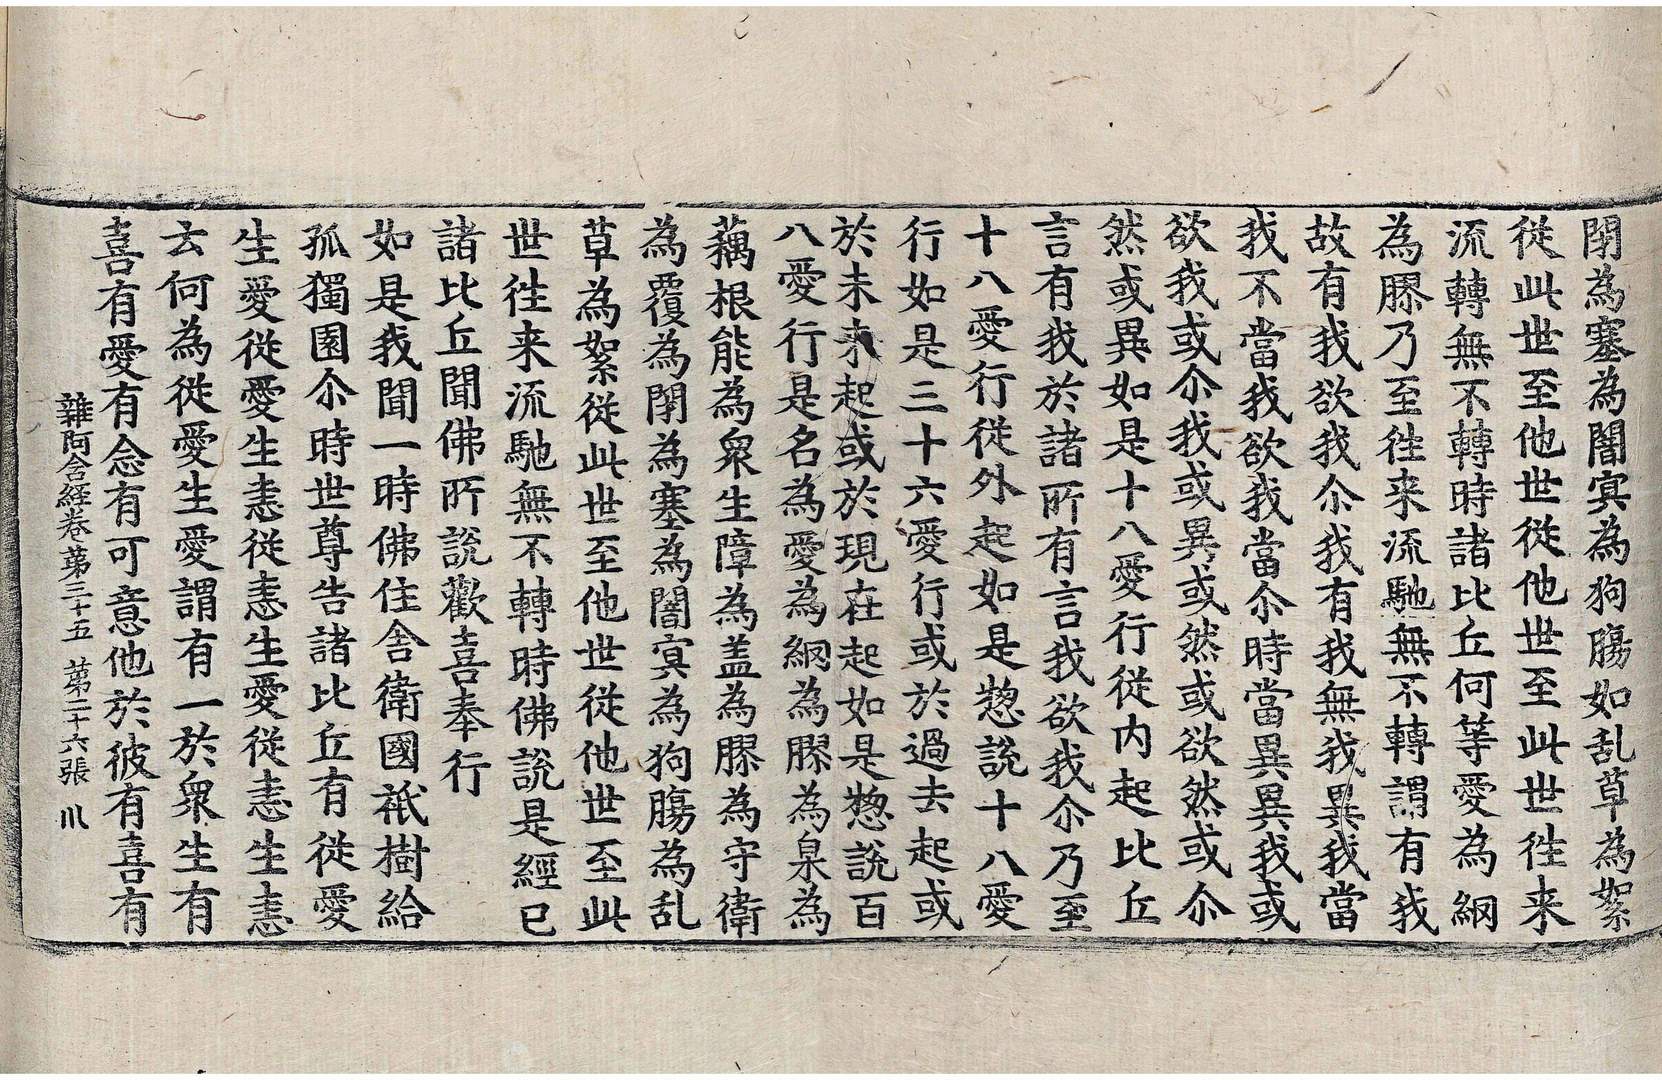 閉為塞為闇冥為狗膓如乱草為絮
從此世至他世從他世至此世徃来
流轉無不轉時諸比丘何等愛為網
為膠乃至徃来流馳無不轉謂有我
故有我欲我尒我有我無我異我當
我不當我欲我當尒時當異異我或
欲我或尒我或異或然或欲然或尒
然或異如是十八愛行從内起比丘
言有我於諸所有言我欲我尒乃至
十八愛行從外起如是惣說十八愛
行如是三十六愛行或於過去起或
於未来起或於現在起如是惣說百
八愛行是名為愛為網為膠為泉為
藕根能為衆生障為盖為膠為守衛
為覆為閉為塞為闇冥為狗膓為乱
草為絮從此世至他世從他世至此
世徃来流馳無不轉時佛說是經已
諸比丘聞佛所說歡喜奉行
如是我聞一時佛住舍衛國祇樹給
孤獨園尒時世尊告諸比丘有從愛
生愛從愛生恚從恚生愛從恚生恚
云何為從愛生愛謂有一於衆生有
喜有愛有念有可意他於彼有喜有
雜阿含経卷苐三十五 苐二十六張 川